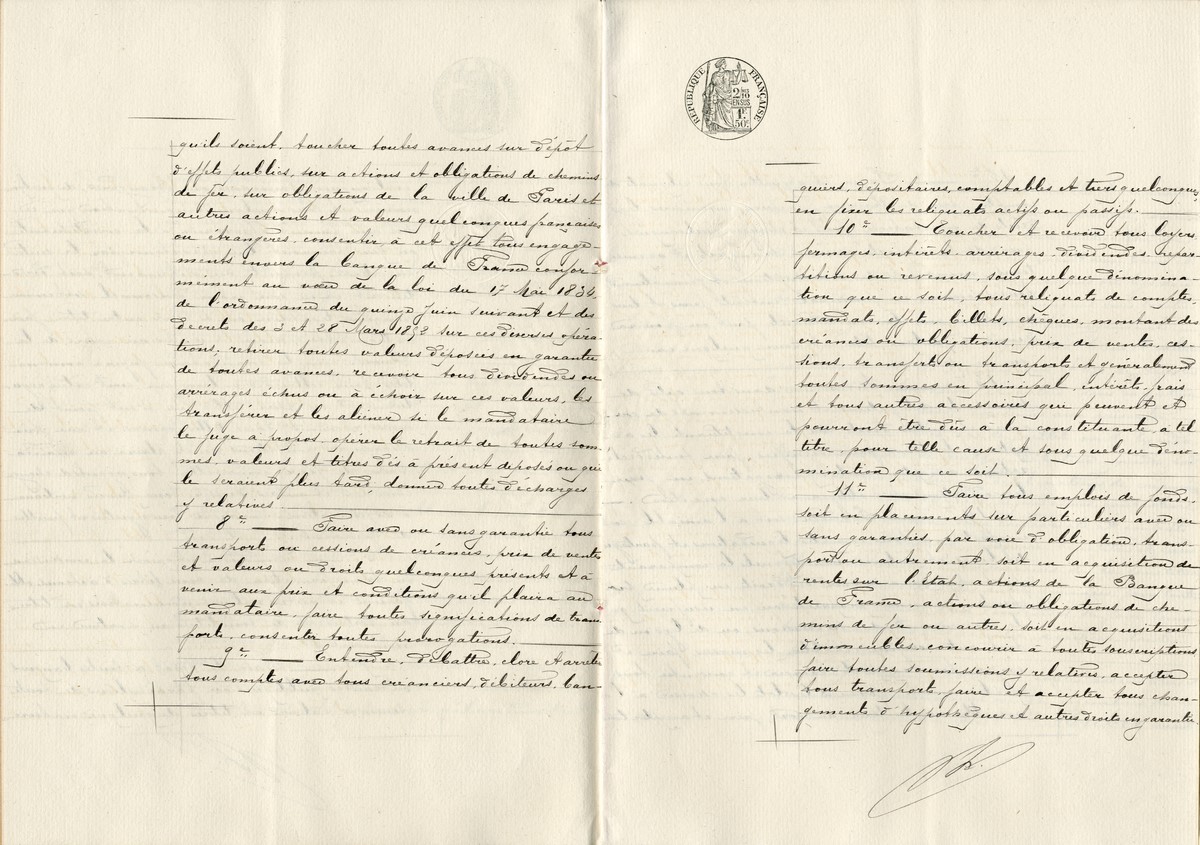 qu'ils soient, toucher toutes avances sur dépôt
d'effets publics, sur actions et obligations de chemins
de fer, sur obligations de la ville de Paris et
autres actions et valeurs quelconques françaises
ou étrangères, consentir à cet effet tous engage-
ments envers la banque de France confor-
mément au vœu de la loi du 17 Mai 1834,
de l'ordonnance du quinze Juin suivant et des
décrets des 3 et 28 Mars 1852 sur ces diverses opéra-
tions; retirer toutes valeurs déposées en garantie
de toutes avances, recevoir tous dividendes ou
arrérages échus ou à échoir sur ces valeurs, les
transférer et les aliéner si le mandataire
le juge à propos, opérer le retrait de toutes som-
mes, valeurs et titres dès à présent déposés ou qui
le seraient plus tard, donner toutes décharges
y relatives.
8°_ Faire avec ou sans garantie tous
transports ou cessions de créances, prix de ventes
et valeurs ou droits quelconques, présents et à
venir aux prix et conditions qu'il plaira au
mandataire, faire toutes significations de trans-
ports, consentir toutes prorogations.
9°_ Entendre, débattre, clore et arrêter
tous comptes avec tous créanciers, débiteurs, ban-
RÉPUBLIQUE FRANÇAISE
2/10
EN SUS
1F.
50c.
quiers, dépositaires, comptables et tiers quelconques,
en fixer les reliquats actifs ou passifs.
10°_ Toucher et recevoir tous loyers,
fermages, intérêts, arrérages, dividendes, répar-
titions ou revenus, sous quelque dénomina-
tion que ce soit, tous reliquats de comptes,
mandats, effets, billets, chèques, montant des
créances ou obligations, prix de ventes, ces-
sions, transferts ou transports et généralement
toutes sommes en principal, intérêts, frais
et tous autres accessoires qui peuvent et
pourront être dûs à la constituante à tel
titre, pour telle cause et sous quelque déno-
mination que ce soit.
11°_ Faire tous emplois de fonds,
soit en placements sur particuliers avec ou
sans garanties, par voie d'obligation, trans-
port ou autrement, soit en acquisition de
rentes sur l'État, actions de la Banque
de France, actions ou obligations de che-
mins de fer ou autres, soit en acquisitions
d'immeubles, concourir à toutes souscriptions
faire toutes soumissions y relatives, accepter
tous transports, faire et accepter tous chan-
gements d'hypothèques et autres droits en garantie.